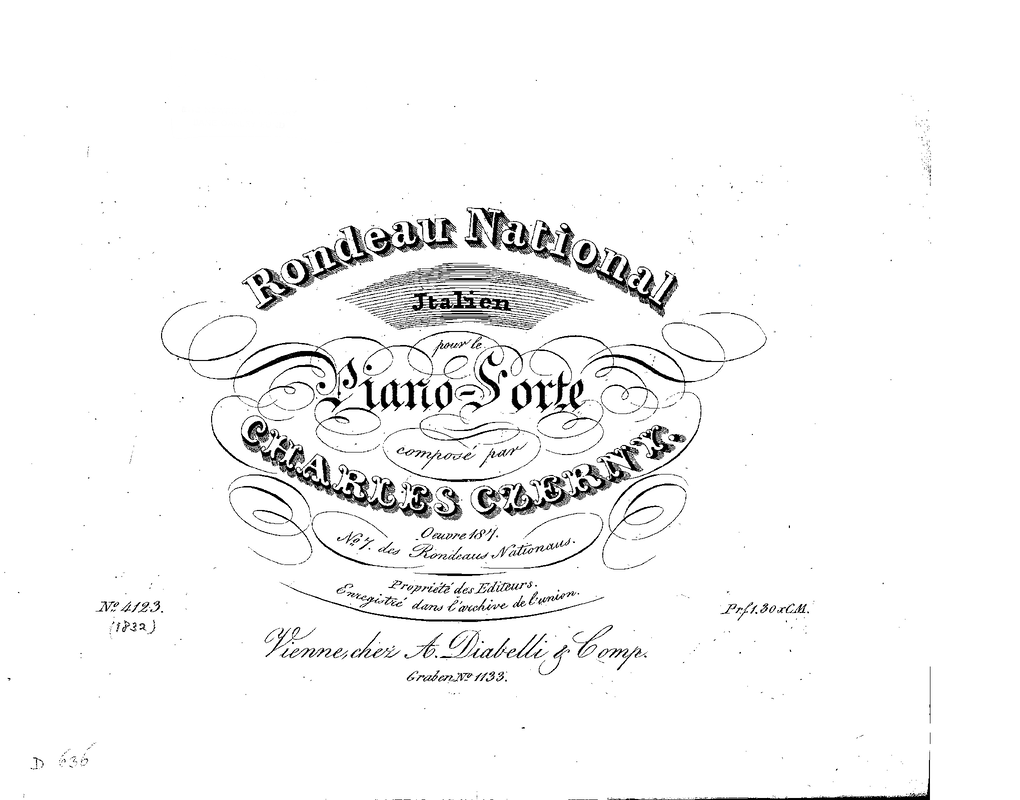 Rondeau National
Italien
pour le
Piano-Forte
composé par
CHARLES CZERNY.
Oeuvre 187.
No 7. des Rondeaus Nationaus.
Propriété des Editeurs.
Enregistré dans l'archive de l'union.
No 4123.
(1832)
Pr f 1.30 x C.M.
Vienne, chez A. Diabelli & Comp.
Graben No 1133.
D 636